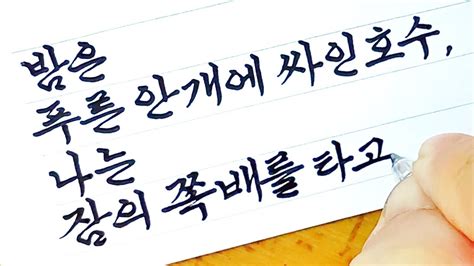 밤은
푸른 안개에 싸인 호수,
나는
잠의 쪽배를 타고